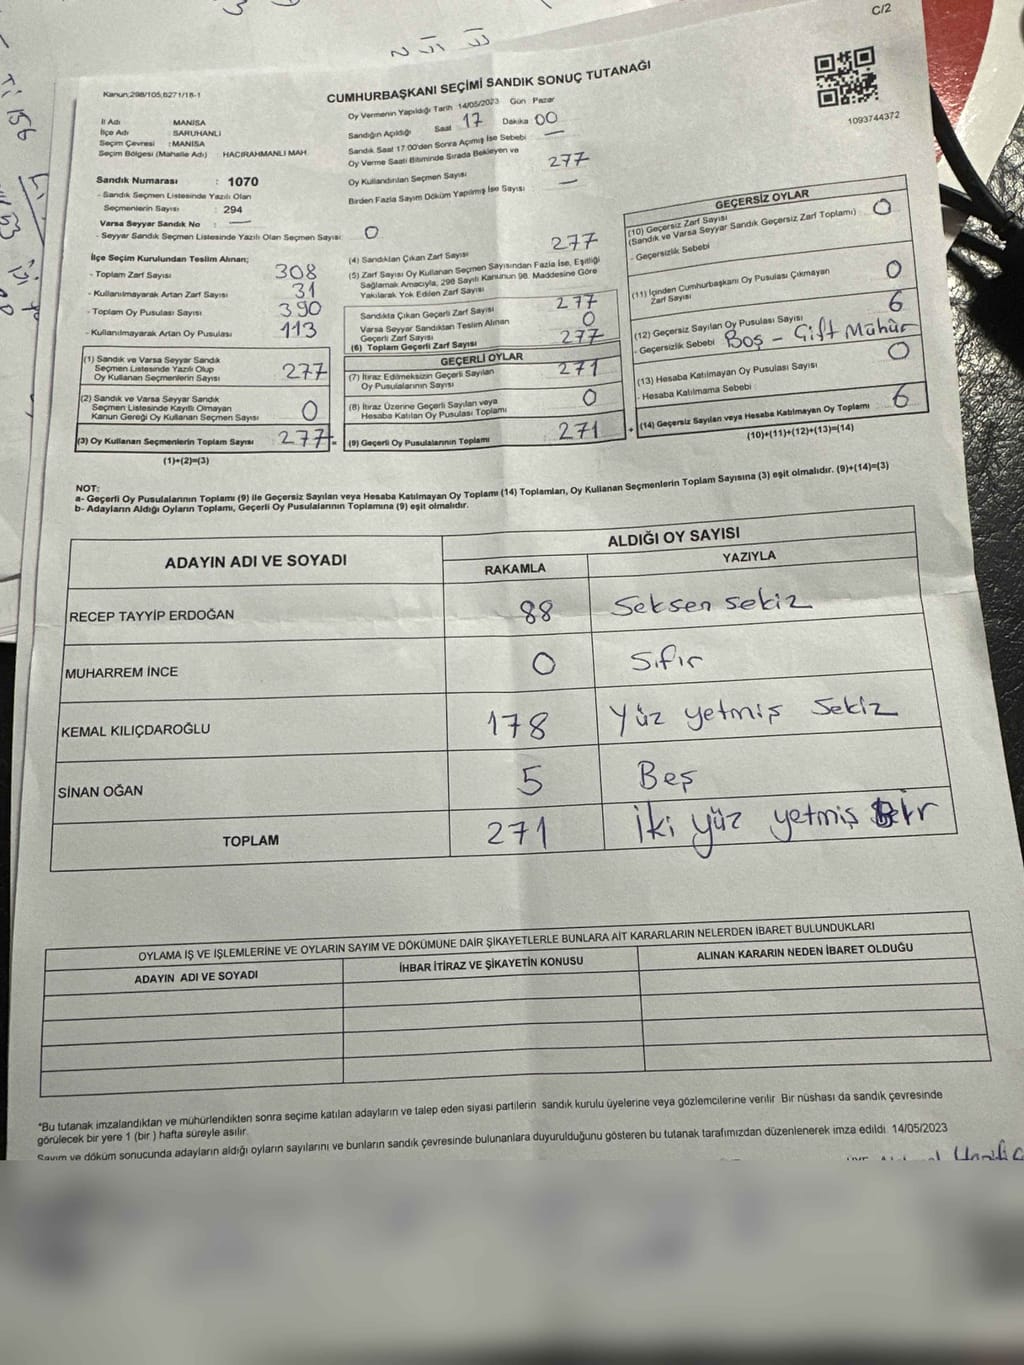 C/2
Kanun;298/105,6271/18-1
CUMHURBAŞKANI SEÇİMİ SANDIK SONUÇ TUTANAĞI
1093744372
İl Adı : MANİSA
İlçe Adı : SARUHANLI
Seçim Çevresi : MANİSA
Seçim Bölgesi (Mahalle Adı) : HACIRAHMANLI MAH.
Sandık Numarası : 1070
- Sandık Seçmen Listesinde Yazılı Olan
Seçmenlerin Sayısı : 294
Varsa Seyyar Sandık No : —
- Seyyar Sandık Seçmen Listesinde Yazılı Olan Seçmen Sayısı: 0
İlçe Seçim Kurulundan Teslim Alınan;
- Toplam Zarf Sayısı 308
- Kullanılmayarak Artan Zarf Sayısı 31
- Toplam Oy Pusulası Sayısı 390
- Kullanılmayarak Artan Oy Pusulası 113
(1) Sandık ve Varsa Seyyar Sandık
Seçmen Listesinde Yazılı Olup
Oy Kullanan Seçmenlerin Sayısı 277
(2) Sandık ve Varsa Seyyar Sandık
Seçmen Listesinde Kayıtlı Olmayan
Kanun Gereği Oy Kullanan Seçmen Sayısı 0
(3) Oy Kullanan Seçmenlerin Toplam Sayısı 277 =
(1)+(2)=(3)
Oy Vermenin Yapıldığı Tarih 14/05/2023 Gün Pazar
Sandığın Açıldığı Saat 17 Dakika 00
Sandık Saat 17:00'den Sonra Açılmış İse Sebebi —
Oy Verme Saati Bitiminde Sırada Bekleyen ve
Oy Kullandırılan Seçmen Sayısı 277
Birden Fazla Sayım Döküm Yapılmış İse Sayısı —
(4) Sandıktan Çıkan Zarf Sayısı 277
(5) Zarf Sayısı Oy Kullanan Seçmen Sayısından Fazla İse, Eşitliği
Sağlamak Amacıyla, 298 Sayılı Kanunun 98. Maddesine Göre
Yakılarak Yok Edilen Zarf Sayısı —
Sandıkta Çıkan Geçerli Zarf Sayısı 277
Varsa Seyyar Sandıktan Teslim Alınan
Geçerli Zarf Sayısı 0
(6) Toplam Geçerli Zarf Sayısı 277
GEÇERLİ OYLAR
(7) İtiraz Edilmeksizin Geçerli Sayılan
Oy Pusulalarının Sayısı 271
(8) İtiraz Üzerine Geçerli Sayılan veya
Hesaba Katılan Oy Pusulası Toplamı 0
(9) Geçerli Oy Pusulalarının Toplamı 271 +
GEÇERSİZ OYLAR
(10) Geçersiz Zarf Sayısı
(Sandık ve Varsa Seyyar Sandık Geçersiz Zarf Toplamı) 0
- Geçersizlik Sebebi
(11) İçinden Cumhurbaşkanı Oy Pusulası Çıkmayan
Zarf Sayısı 0
(12) Geçersiz Sayılan Oy Pusulası Sayısı 6
- Geçersizlik Sebebi Boş - Çift Mühür
(13) Hesaba Katılmayan Oy Pusulası Sayısı 0
- Hesaba Katılmama Sebebi
(14) Geçersiz Sayılan veya Hesaba Katılmayan Oy Toplamı 6
(10)+(11)+(12)+(13)=(14)
NOT:
a- Geçerli Oy Pusulalarının Toplamı (9) ile Geçersiz Sayılan veya Hesaba Katılmayan Oy Toplamı (14) Toplamları, Oy Kullanan Seçmenlerin Toplam Sayısına (3) eşit olmalıdır. (9)+(14)=(3)
b- Adayların Aldığı Oyların Toplamı, Geçerli Oy Pusulalarının Toplamına (9) eşit olmalıdır.
ADAYIN ADI VE SOYADI
ALDIĞI OY SAYISI
RAKAMLA YAZIYLA
RECEP TAYYİP ERDOĞAN 88 Seksen sekiz
MUHARREM İNCE 0 Sıfır
KEMAL KILIÇDAROĞLU 178 Yüz yetmiş sekiz
SİNAN OĞAN 5 Beş
TOPLAM 271 İki yüz yetmiş bir
OYLAMA İŞ VE İŞLEMLERİNE VE OYLARIN SAYIM VE DÖKÜMÜNE DAİR ŞİKAYETLERLE BUNLARA AİT KARARLARIN NELERDEN İBARET BULUNDUKLARI
ADAYIN ADI VE SOYADI İHBAR İTİRAZ VE ŞİKAYETİN KONUSU ALINAN KARARIN NEDEN İBARET OLDUĞU
*Bu tutanak imzalandıktan ve mühürlendikten sonra seçime katılan adayların ve talep eden siyasi partilerin sandık kurulu üyelerine veya gözlemcilerine verilir. Bir nüshası da sandık çevresinde
görülecek bir yere 1 (bir ) hafta süreyle asılır.
Sayım ve döküm sonucunda adayların aldığı oyların sayılarını ve bunların sandık çevresinde bulunanlara duyurulduğunu gösteren bu tutanak tarafımızdan düzenlenerek imza edildi. 14/05/2023